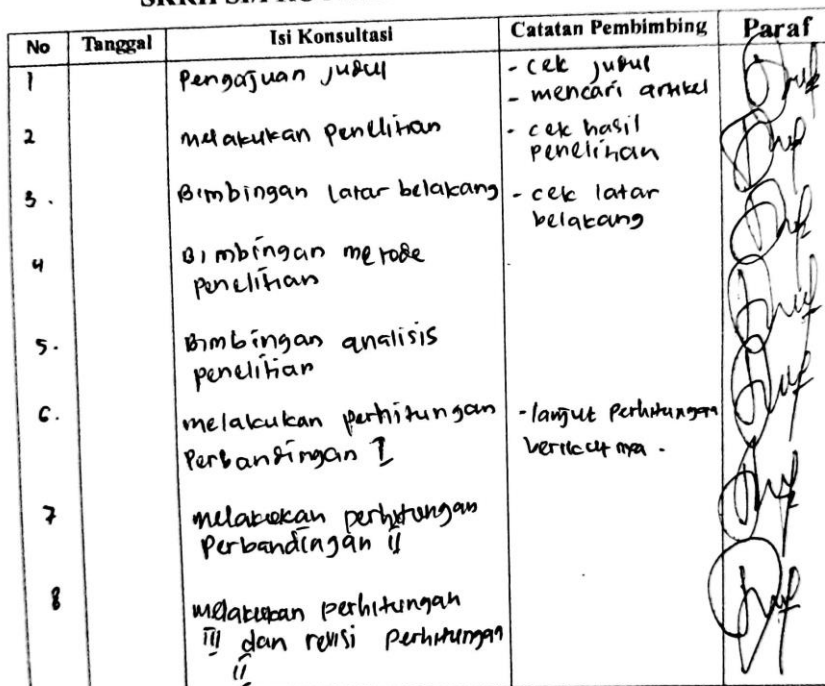 No Tanggal Isi Konsultasi Catatan Pembimbing Paraf
1 Pengajuan judul - cek judul
- mencari artikel
2 melakukan penelitian - cek hasil
penelitian
3. Bimbingan latar belakang - cek latar
belakang
4 Bimbingan metode
penelitian
5. Bimbingan analisis
penelitian
6. melakukan perhitungan - lanjut perhitungan
Perbandingan I berikutnya.
7 melakukan perhitungan
Perbandingan II
8 melakukan perhitungan
III dan revisi perhitungan
II